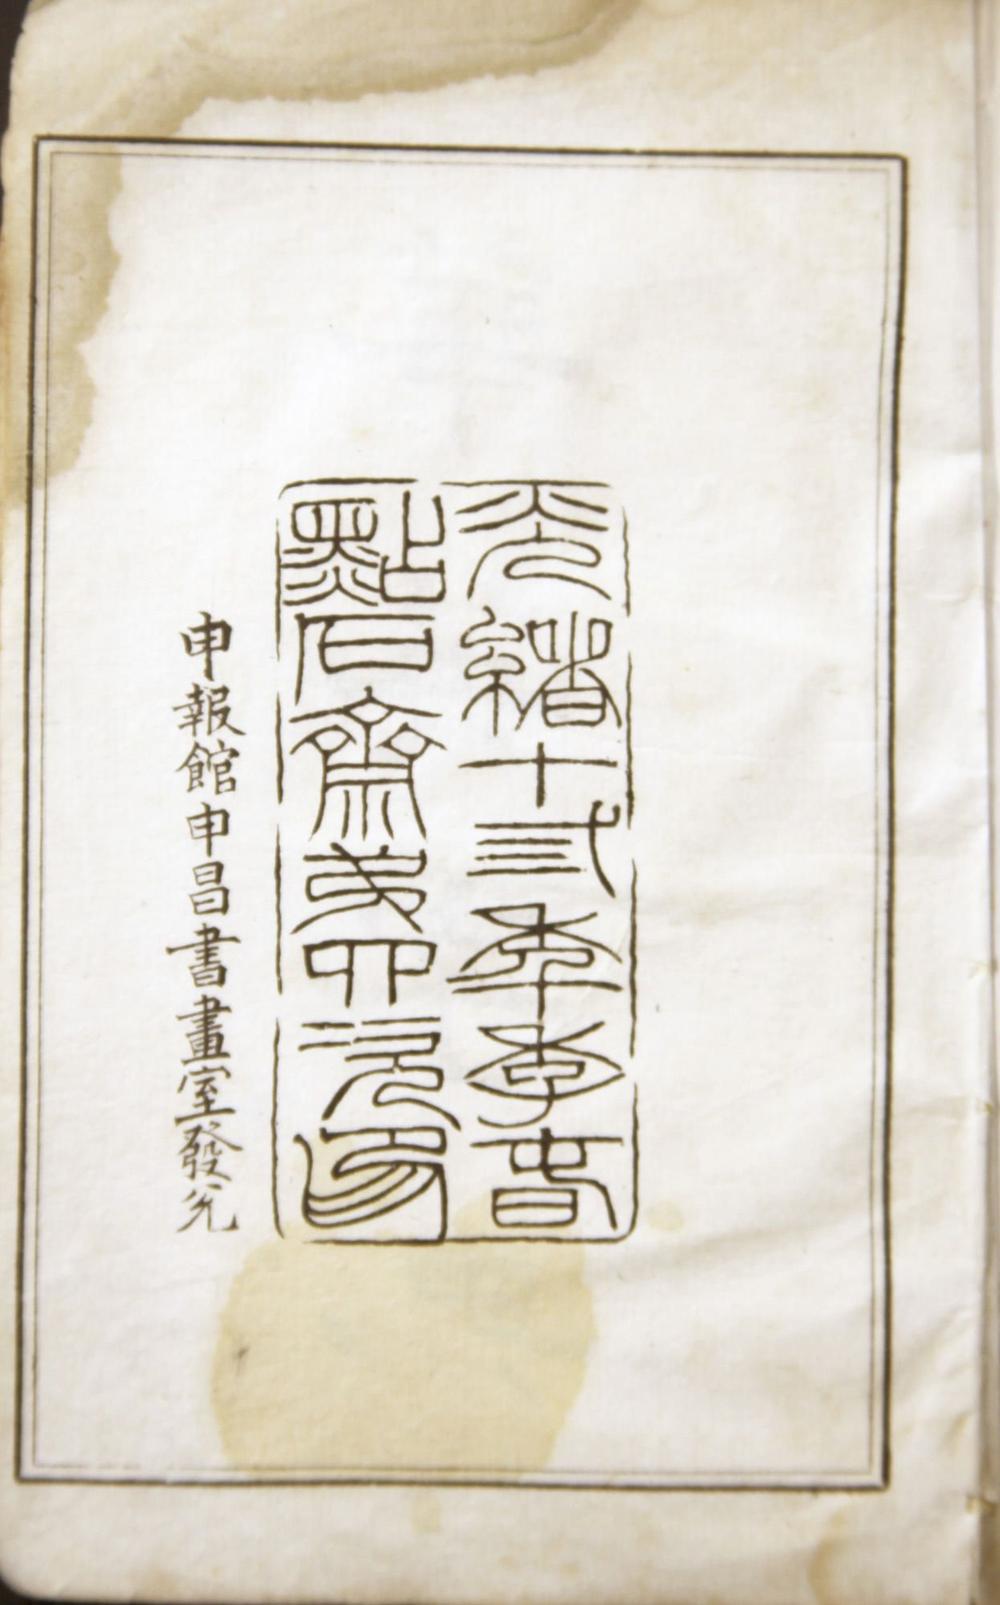 光緒十弍年季春
點石齋弟四次印
申報館申昌書畫室發兌